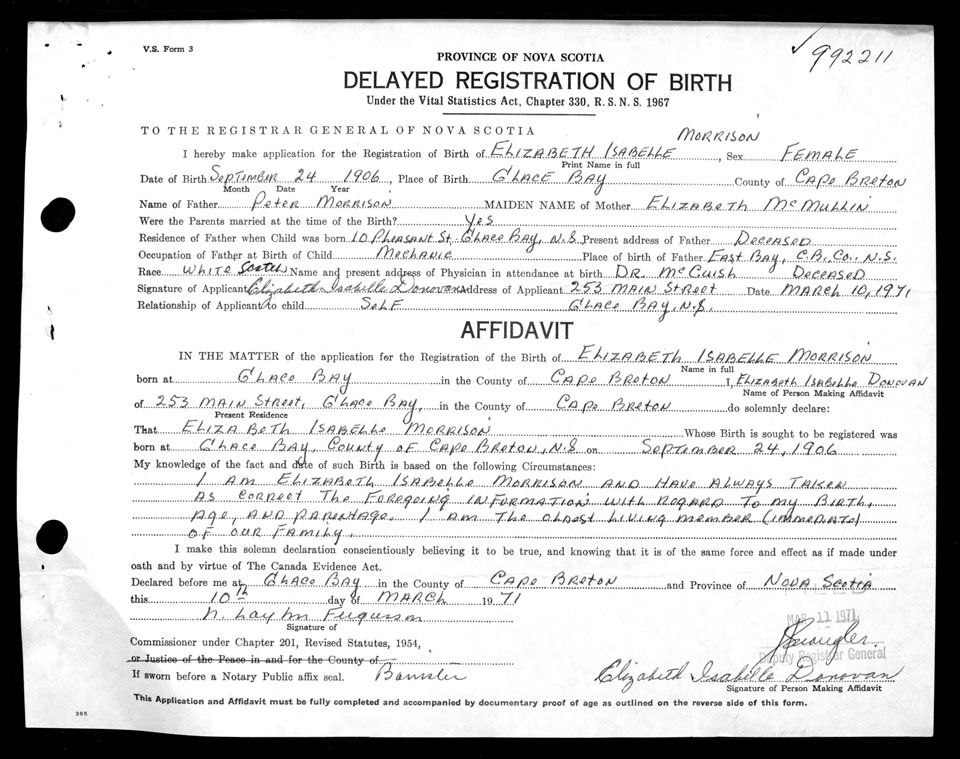 V.S. Form 3
✓992211
PROVINCE OF NOVA SCOTIA
DELAYED REGISTRATION OF BIRTH
Under the Vital Statistics Act, Chapter 330, R.S.N.S. 1967
TO THE REGISTRAR GENERAL OF NOVA SCOTIA
MORRISON
I hereby make application for the Registration of Birth of ELIZABETH ISABELLE, Sex FEMALE
Print Name in full
Date of Birth SEPTEMBER 24 1906, Place of Birth GLACE BAY County of CAPE BRETON
Month Date Year
Name of Father PETER MORRISON MAIDEN NAME of Mother ELIZABETH McMULLIN
Were the Parents married at the time of the Birth? YES
Residence of Father when Child was born 10 PLEASANT ST. GLACE BAY, N.S. Present address of Father DECEASED
Occupation of Father at Birth of Child MECHANIC Place of birth of Father EAST BAY, C.B. CO. N.S.
Race WHITE Scotch Name and present address of Physician in attendance at birth DR. McCUISH DECEASED
Signature of Applicant Elizabeth Isabelle Donovan Address of Applicant 253 MAIN STREET Date MARCH 10, 1971
Relationship of Applicant to child SELF GLACE BAY, N.S.
AFFIDAVIT
IN THE MATTER of the application for the Registration of the Birth of ELIZABETH ISABELLE MORRISON
Name in full
born at GLACE BAY in the County of CAPE BRETON I, ELIZABETH ISABELLE DONOVAN
Name of Person Making Affidavit
of 253 MAIN STREET, GLACE BAY, in the County of CAPE BRETON do solemnly declare:
Present Residence
That ELIZABETH ISABELLE MORRISON Whose Birth is sought to be registered was
born at GLACE BAY, COUNTY OF CAPE BRETON, N.S on SEPTEMBER 24, 1906
My knowledge of the fact and date of such Birth is based on the following Circumstances:
I AM ELIZABETH ISABELLE MORRISON AND HAVE ALWAYS TAKEN
AS CORRECT THE FOREGOING INFORMATION WITH REGARD TO MY BIRTH,
AGE, AND PARENTAGE. I AM THE OLDEST LIVING MEMBER (IMMEDIATE)
OF OUR FAMILY.
I make this solemn declaration conscientiously believing it to be true, and knowing that it is of the same force and effect as if made under
oath and by virtue of The Canada Evidence Act.
Declared before me at GLACE BAY in the County of CAPE BRETON and Province of NOVA SCOTIA
this 10th day of MARCH 1971
MAR 11 1971
Signature of
Commissioner under Chapter 201, Revised Statutes, 1954,
Deputy Registrar General
or Justice of the Peace in and for the County of
If sworn before a Notary Public affix seal. Barrister
Elizabeth Isabelle Donovan
Signature of Person Making Affidavit
This Application and Affidavit must be fully completed and accompanied by documentary proof of age as outlined on the reverse side of this form.
365